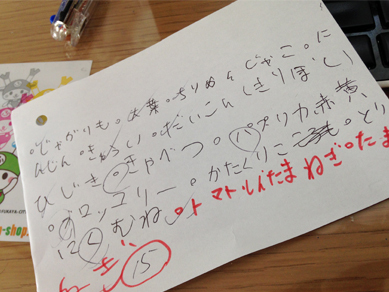 。じゃがりも。お葉。ちりめんじゃこ。に
んじん。きゅうり。だいこん(きりぼし)
ひじき。きゃべつ。パプリカ赤黄
。ブロッコリー。かたくりこ。とり
むね。トマト。しんたまねぎ。たま
15
-shop.